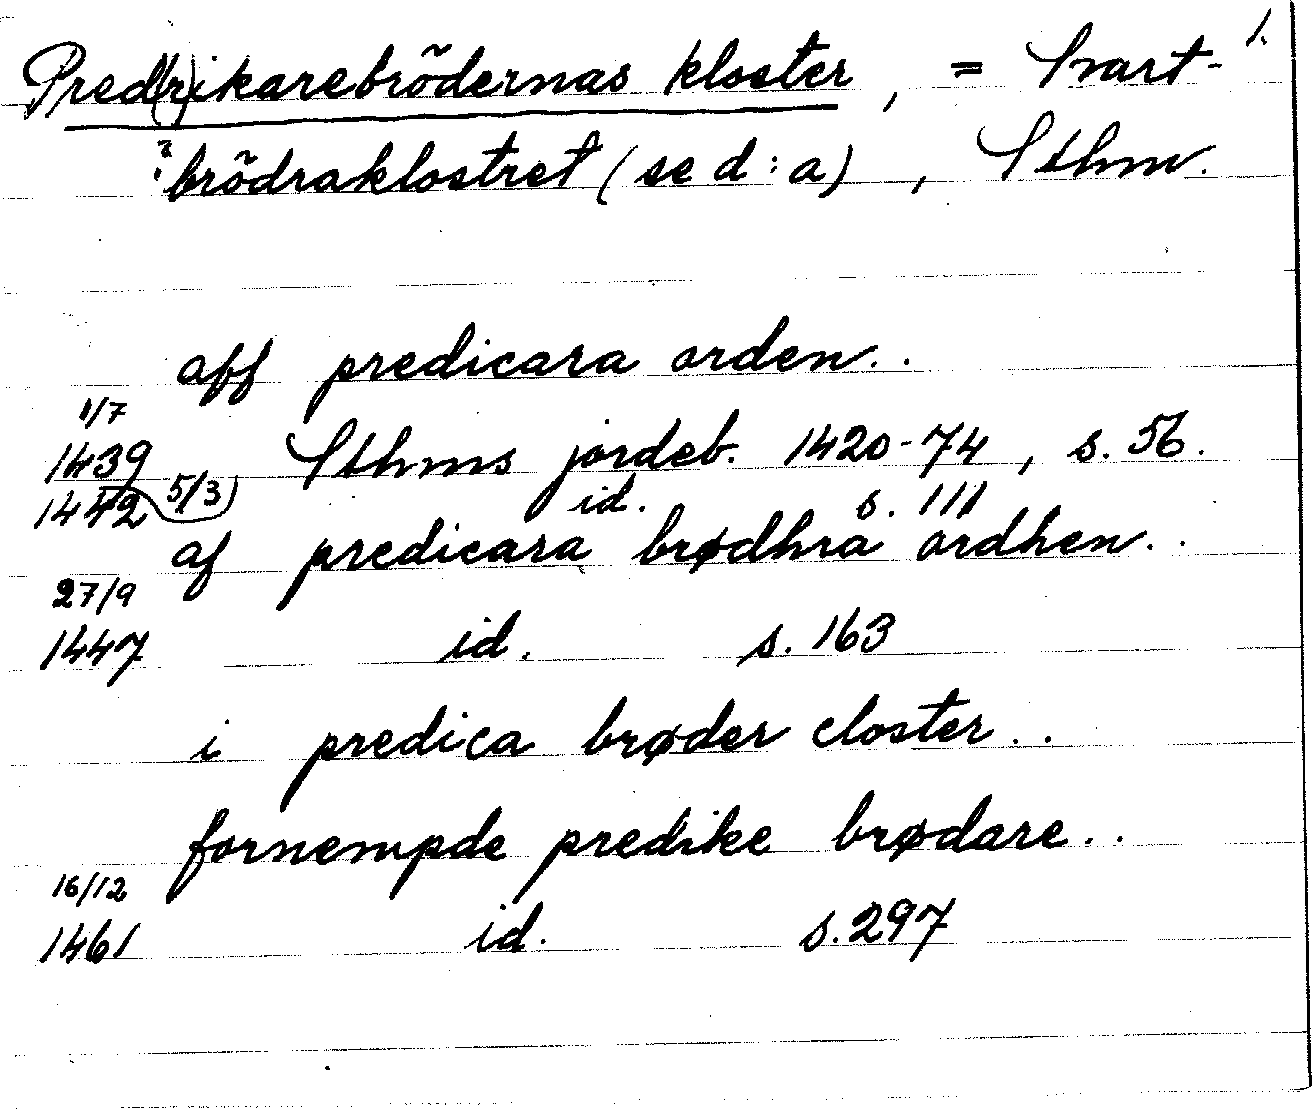 1.
Pred(r)ikarebrödernas kloster, = Svart-
?
brödraklostret (se d:a), Sthm.
aff predicara orden..
1/7
1439 Sthms jordeb. 1420-74, s. 56.
1442 5/3) id. s. 111
af predicara brødhra ordhen..
27/9
1447 id. s. 163
i predica brøder closter..
fornempde predike brødare..
16/12
1461 id. s. 297